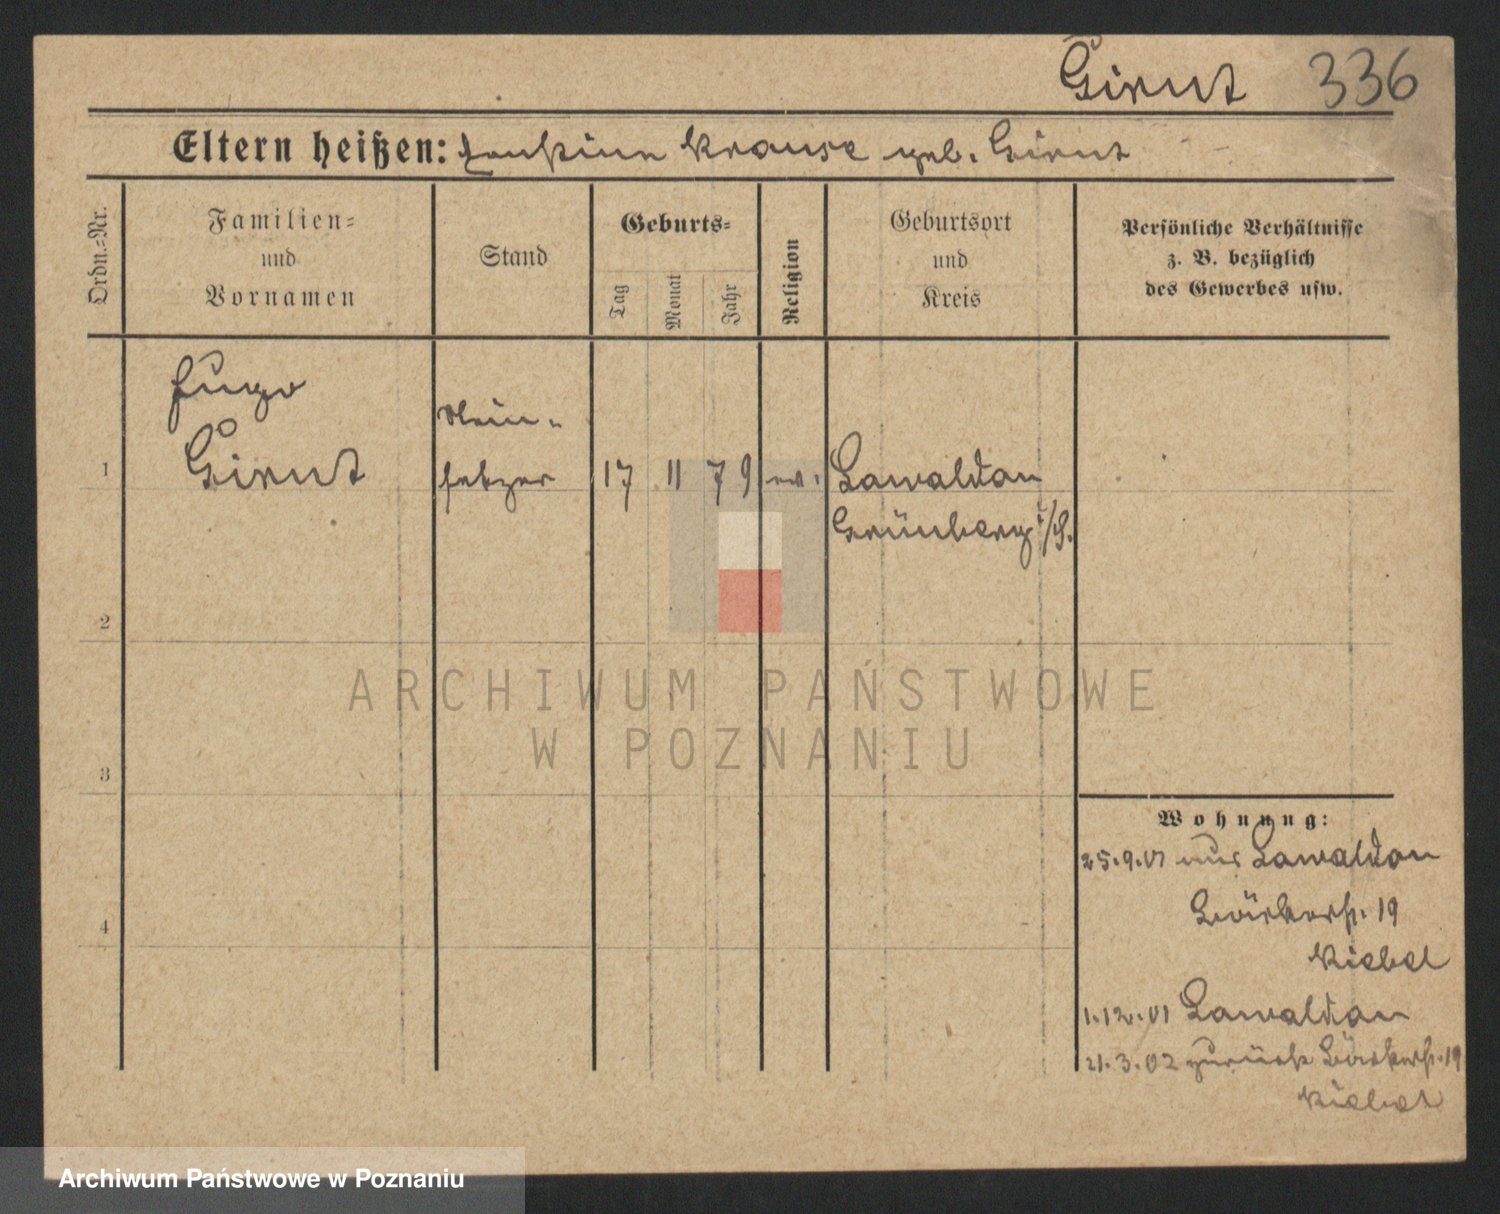 Girnt 336
Eltern heißen: Krause geb. Girnt
Ordn.=Nr.
Familien=
und
Vornamen
Stand
Geburts=
Tag
Monat
Jahr
Religion
Geburtsort
und
Kreis
Persönliche Verhältnisse
z. B. bezüglich
des Gewerbes usw.
Hugo
Girnt
1
17 11 79 ev.
Lawaldau
Grünberg i/S.
2
3
4
Wohnung:
25.9.01 aus Lawaldau
19
Kiebel
1.12.01 Lawaldau
21.3.02 zurück 19
Kiebel
ARCHIWUM PAŃSTWOWE
W POZNANIU
Archiwum Państwowe w Poznaniu